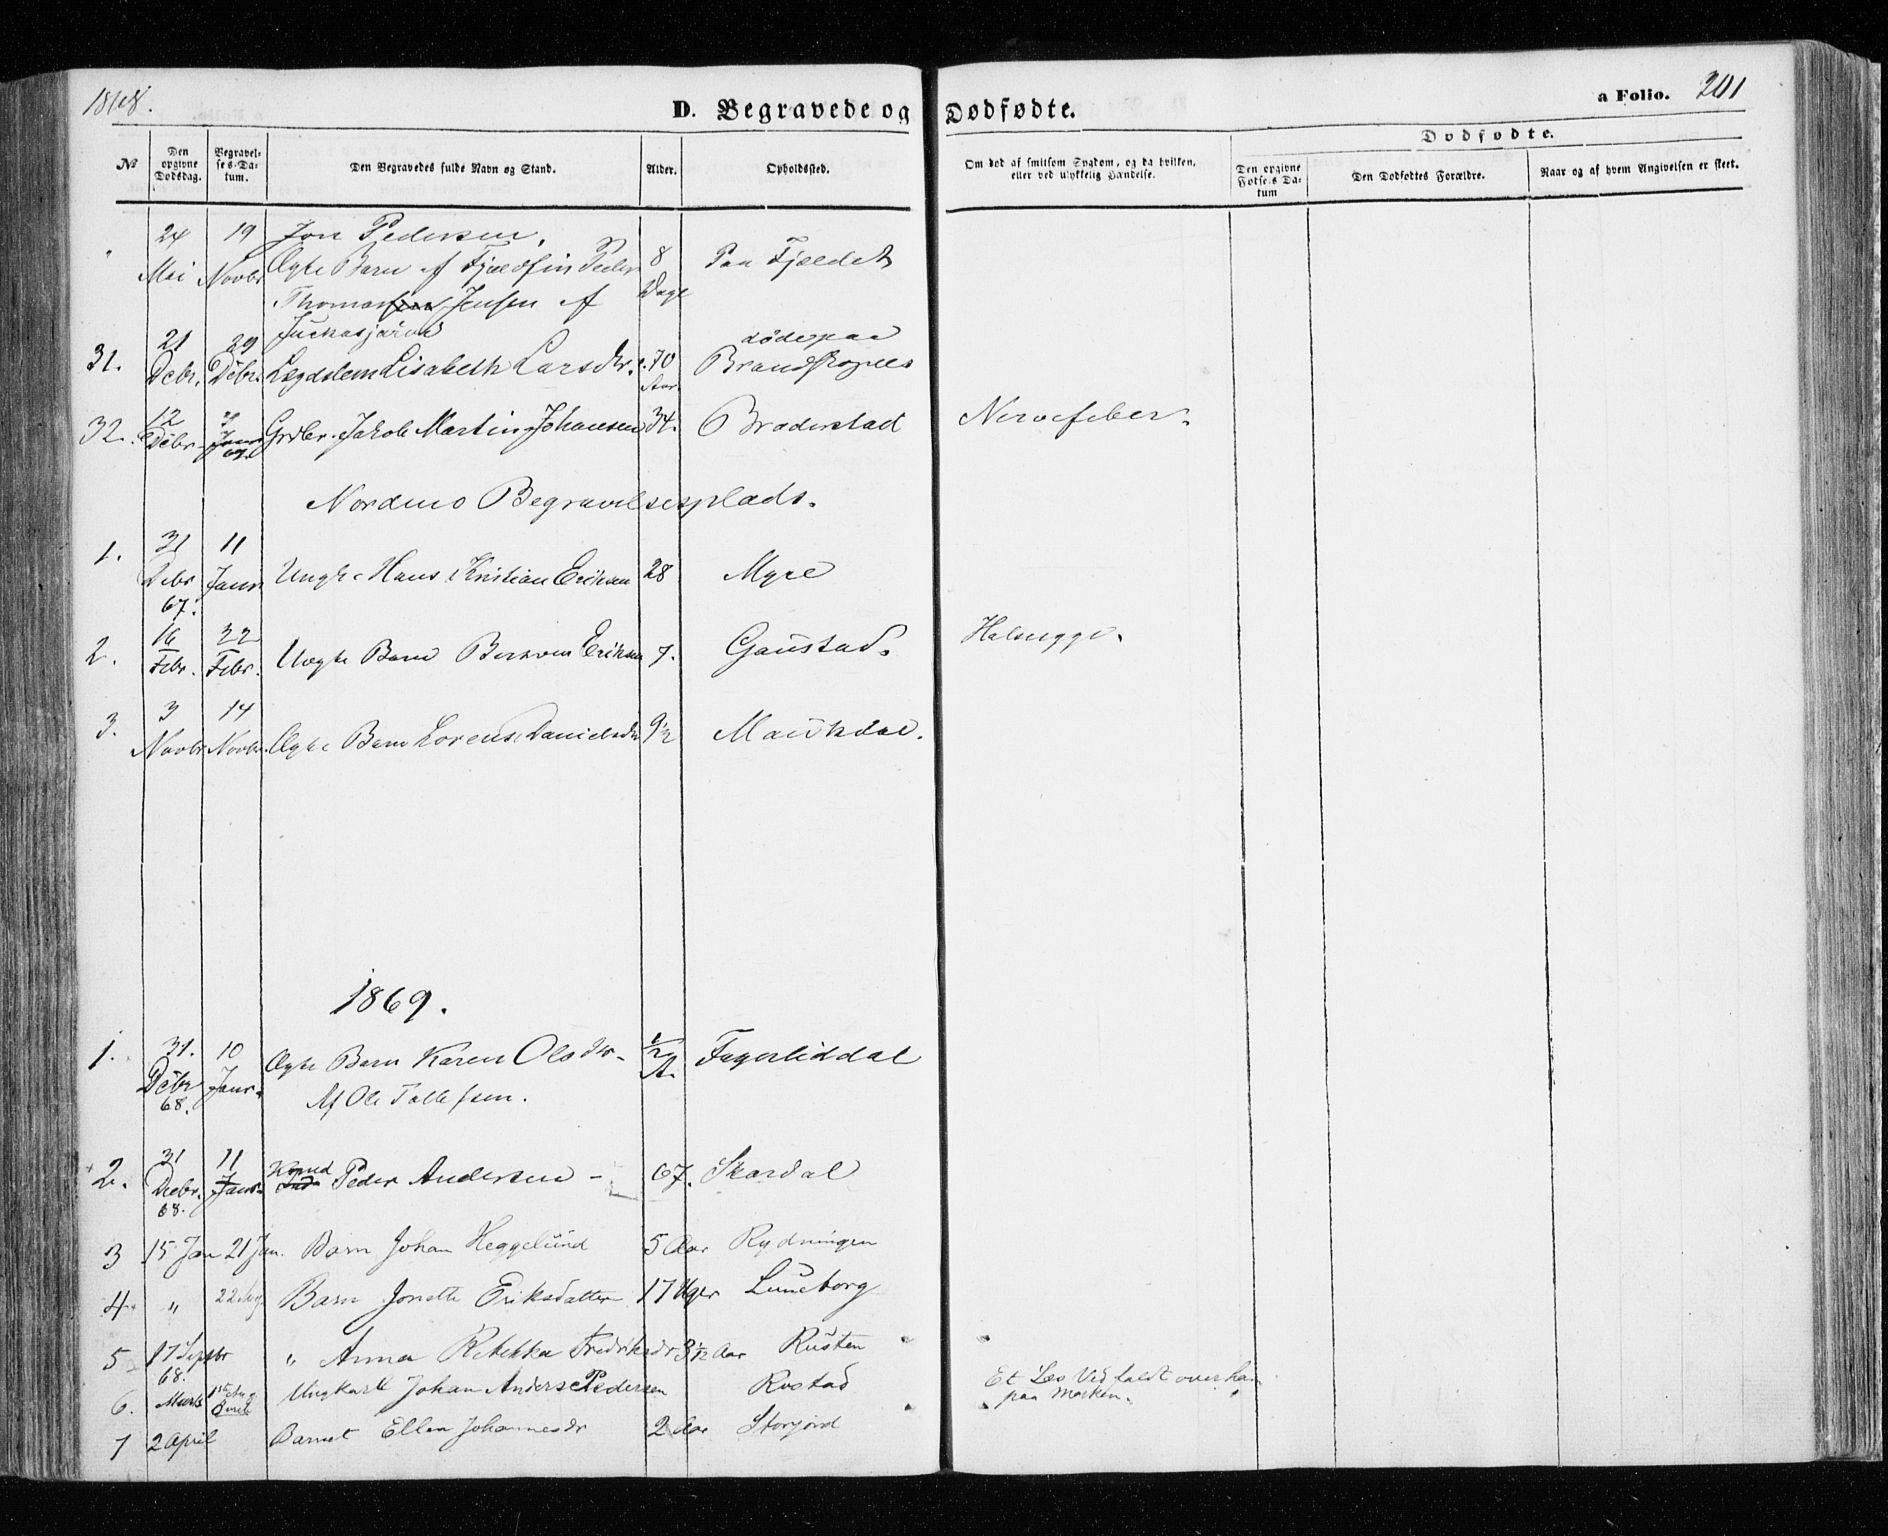 1868.
D. Begravede og Dødfødte.
a Folio. 201
No
Den opgivne Dødsdag.
Begravelses-Datum.
Den Begravedes fulde Navn og Stand.
Alder.
Opholdssted.
Om død af smitsom Sygdom, og da hvilken, eller ved ulykkelig Hændelse.
Dødfødte.
Den opgivne Fødsels Datum
Den Dødfødtes Forældre.
Naar og af hvem Angivelsen er skeet.
" 24 Mai 19 Novbr Jon Pedersen, 8 Dage Paa Fjældet
Ægte Barn af Fjeldfin Peder
Thomas Jensen af
Juckasjärvi
31. 21 Debr. 29 Debr. Lægdslem Lisabeth Larsdtr. 70 Aar. døde paa Brandskognes
32. 12 Debr. Janr 69. Grdbr. Jakob Martin Johansen 34. Braderstad Nervefeber.
Nordmo Begravelsesplads.
1. 31 Debr 67. 11 Janr. Ungk. Hans Kristian Eriksen 28 Myre
2. 16 Febr. 22 Febr. Uægte Barn Eriksen 7. Gaustad. Halssyge.
3. 3 Novbr 14 Novbr. Ægte Barn Lorens Danielsdtr 9½ Maukdal.
1869.
1. 31. Debr 68. 10 Janr. Ægte Barn Karen Olsdtr. ½ A. Fagerliddal
Af Ole Tollefsen.
2. 31 Decbr. 68. 11 Janr. Peder Andersen - 67. Skardal
3 15 Jan 21 Jan. Barn Johan Heggelund 5 Aar Rydningen
4 " 22 Barn Jonette Eriksdatter 17 Uger Luneborg
5 17 Septbr 68. " Anna Rebekka Fredriksdr 3 ½ Aar Rusten
6. Marts Ungkarl Johan Anders Pedersen Rostad Et Læs Ved faldt over ham
paa Marken.
7 2 April Barnet Ellen Johannesdr 2 Aar Storjord